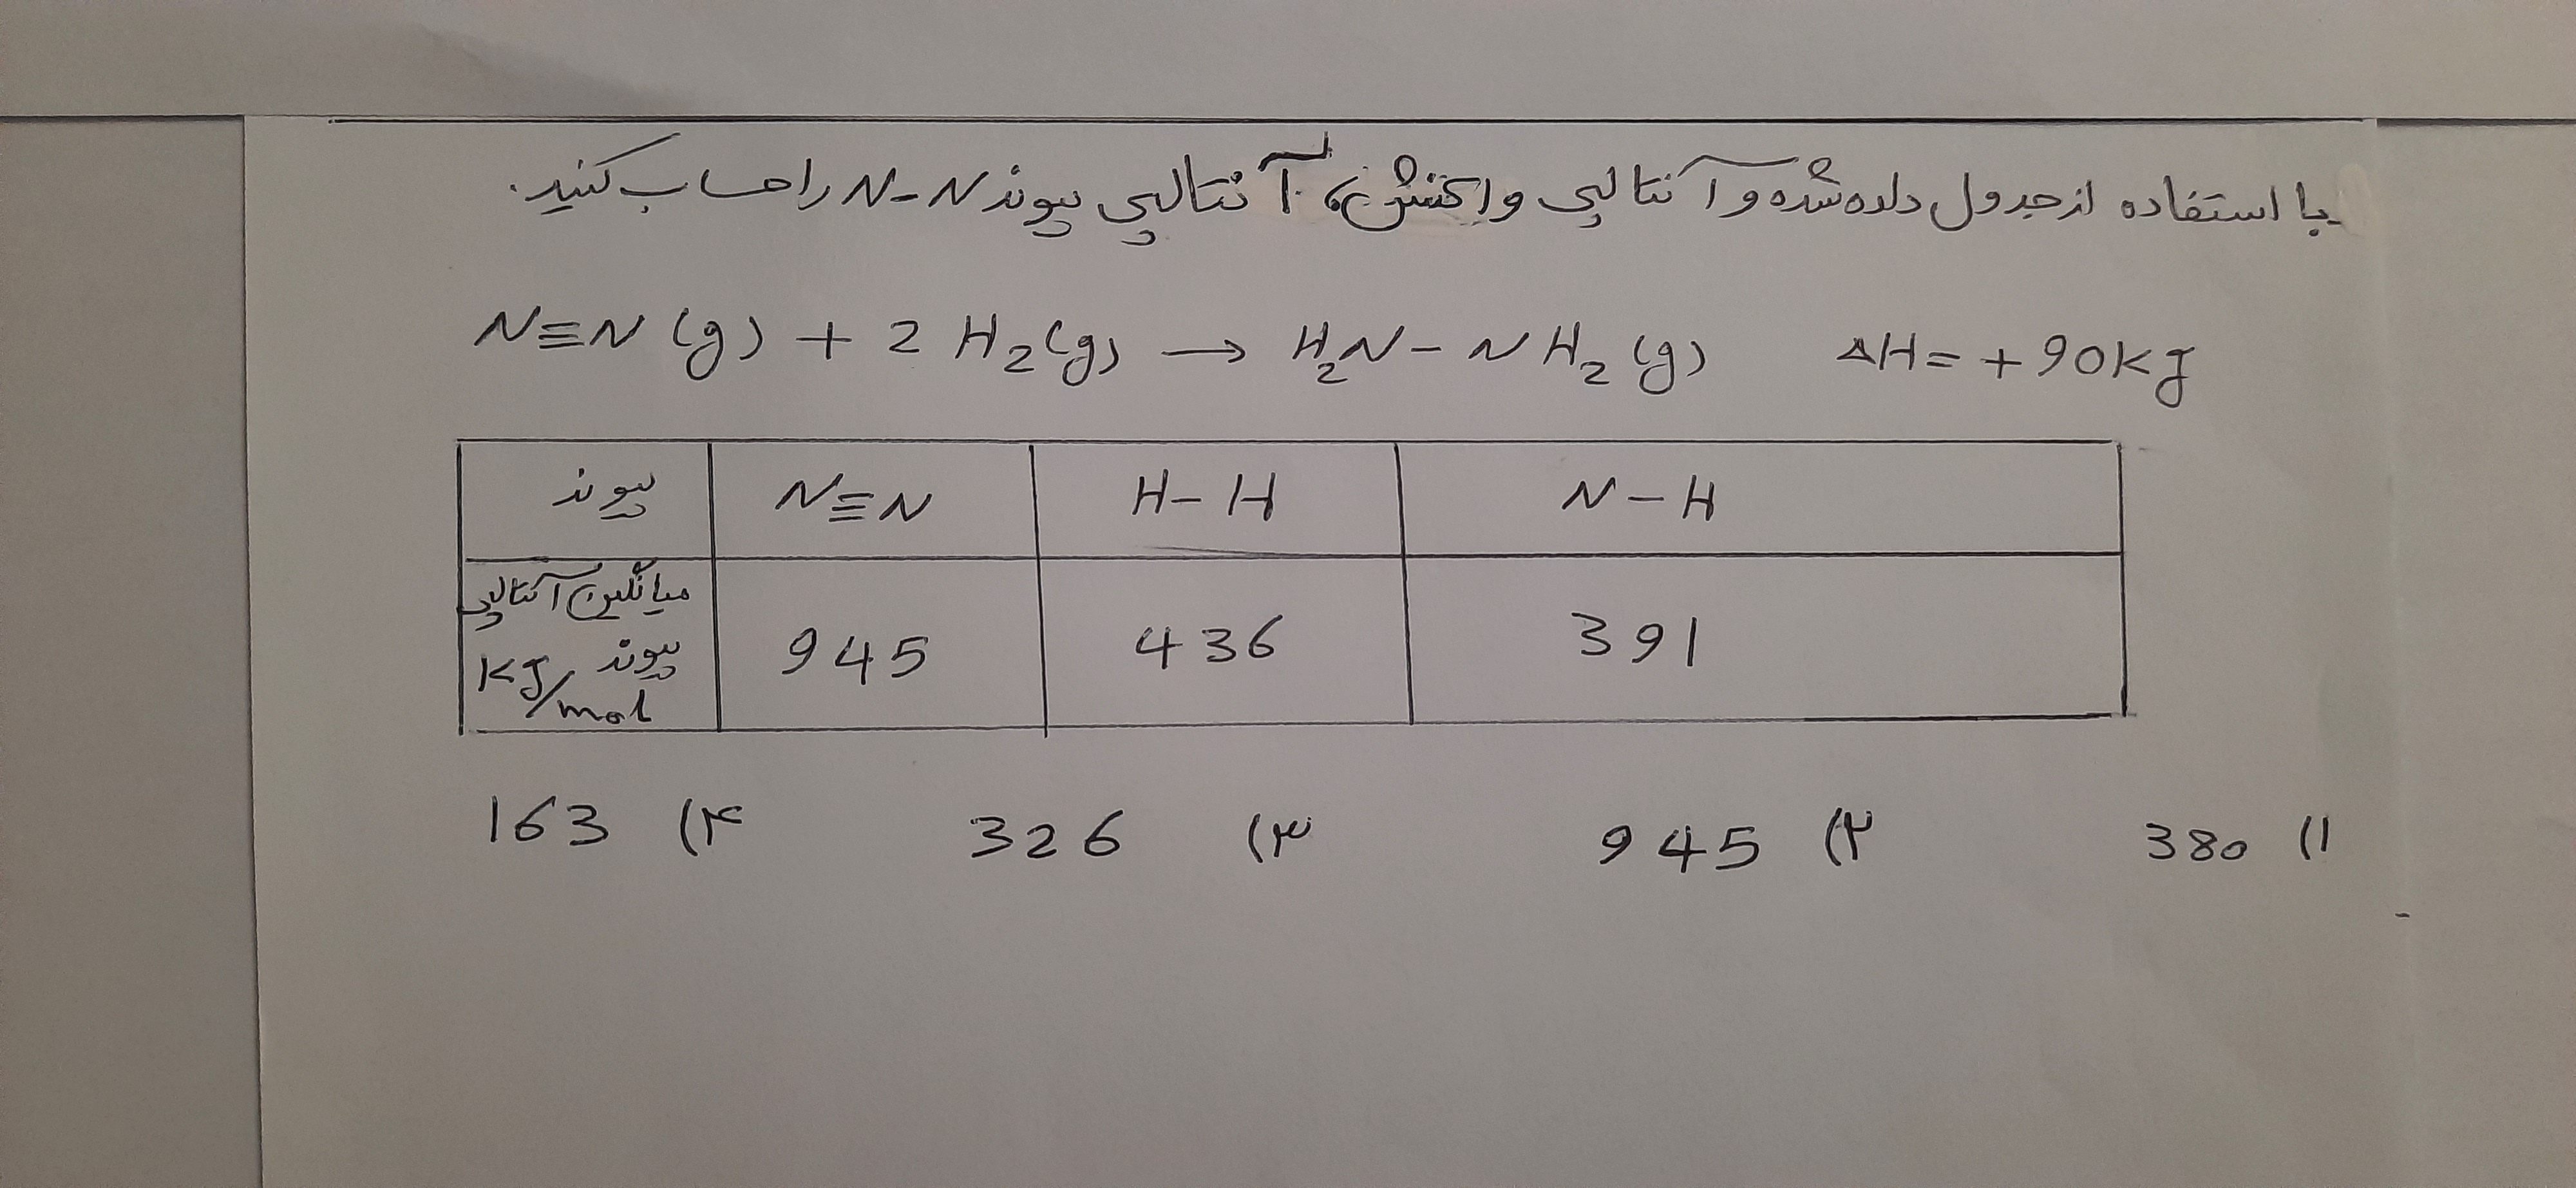 با استفاده از جدول داده شده و آنتالپی واکنش، آنتالپی پیوند N-N را حساب کنید.
N≡N (g) + 2 H₂(g) → H₂N - NH₂ (g) ΔH = + 90 kJ
پیوند N≡N H-H N-H
میانگین آنتالپی پیوند kJ/mol 945 436 391
۱) 380 ۲) 945 ۳) 326 ۴) 163